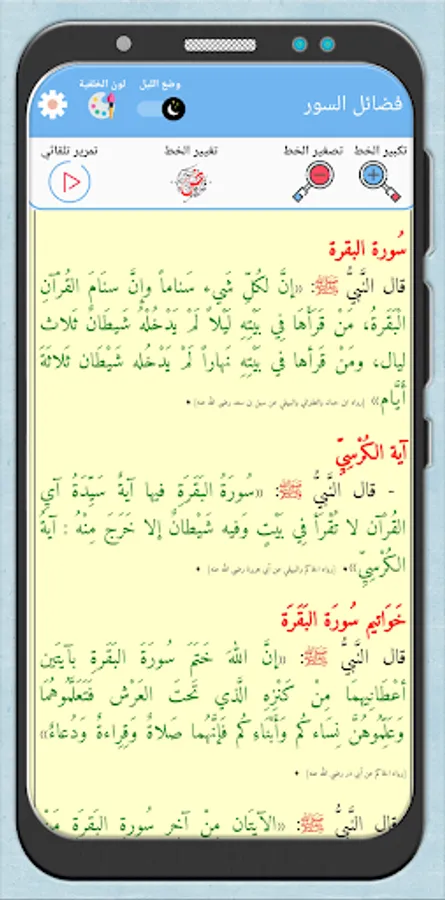 فضائل السور
وضع الليل
لون الخلفية
تكبير الخط
تصغير الخط
تغيير الخط
تمرير تلقائي
سُورة البقرة
قال النَّبِيُّ ﷺ: «إنَّ لكُلِّ شَيء سَناماً وإنَّ سنَامَ القُرْآنِ
الْبَقَرةُ، مَنْ قَرَأَها فِي بَيْتِهِ لَيْلاً لَمْ يَدْخُلْهُ شَيطَانٌ ثَلاث
ليال، ومَنْ قَرأها في بَيْتِهِ نهاراً لَمْ يَدْخُله شَيْطَان ثلاثَةَ
أيَّام» [رواه ابن حبان والطبراني والبيهقي عن سهل بن سعد رضي الله عنه] •
آية الكُرْسِيِّ
- قال النَّبِيُّ ﷺ: «سُورَةُ البَقَرَةِ فيها آيَةٌ سَيِّدَةُ آيِ
القُرْآن لا تُقْرَأُ فِي بَيْتٍ وَفيه شَيْطانٌ إلا خَرَجَ مِنْهُ : آيَةُ
الكُرْسِيِّ»• [رواه الحاكم والبيهقي عن أبي هريرة رضي الله عنه] •
خَوَاتيم سُورَة البَقَرَة
قال النَّبِيُّ ﷺ: «إنَّ اللهَ خَتَمَ سُورَةَ البَقَرةِ بآيَتَين
أَعْطَانِيهِما مِنْ كَنْزِهِ الَّذي تَحتَ العَرْش فَتَعَلَّمُوهُمَا
وَعَلِّمُوهُنَّ نِسَاءكُم وَأَبْنَاءِكُم فَإنَّهُما صَلاةٌ وَقِراءةٌ وَدُعاءٌ»
[رواه الحاكم عن أبي ذر رضي الله عنه] •
قال النَّبِيُّ ﷺ: «الآيَتَان مِنْ آخِرِ سُورةِ البَقَرَةِ مَنْ